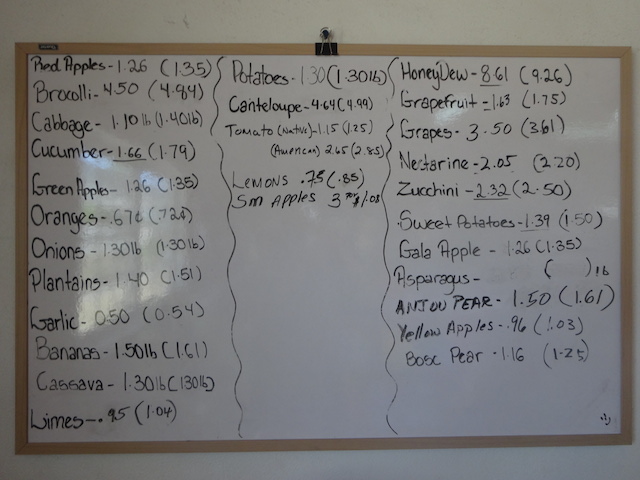 Red Apples - 1.26 (1.35)
Brocolli - 4.50 (4.84)
Cabbage - 1.10 lb (1.40lb)
Cucumber - 1.66 (1.79)
Green Apples - 1.26 (1.35)
Oranges - .67¢ (.72¢)
Onions - 1.30lb (1.30lb)
Plantains - 1.40 (1.51)
Garlic - 0.50 (0.54)
Bananas - 1.50lb (1.61)
Cassava - 1.30lb (1.30lb)
Limes - .95 (1.04)
Potatoes - 1.30 (1.30lb)
Canteloupe - 4.64 (4.99)
Tomato (Native) - 1.15 (1.25)
(American) 2.65 (2.85)
Lemons .75 (.85)
Sm Apples 3 for $1.08
HoneyDew - 8.61 (9.26)
Grapefruit - 1.63 (1.75)
Grapes - 3.50 (3.61)
Nectarine - 2.05 (2.20)
Zucchini - 2.32 (2.50)
Sweet Potatoes - 1.39 (1.50)
Gala Apple - 1.26 (1.35)
Asparagus - ( ) lb
ANJOU PEAR - 1.50 (1.61)
Yellow Apples - .96 (1.03)
Bosc Pear - 1.16 (1.25)